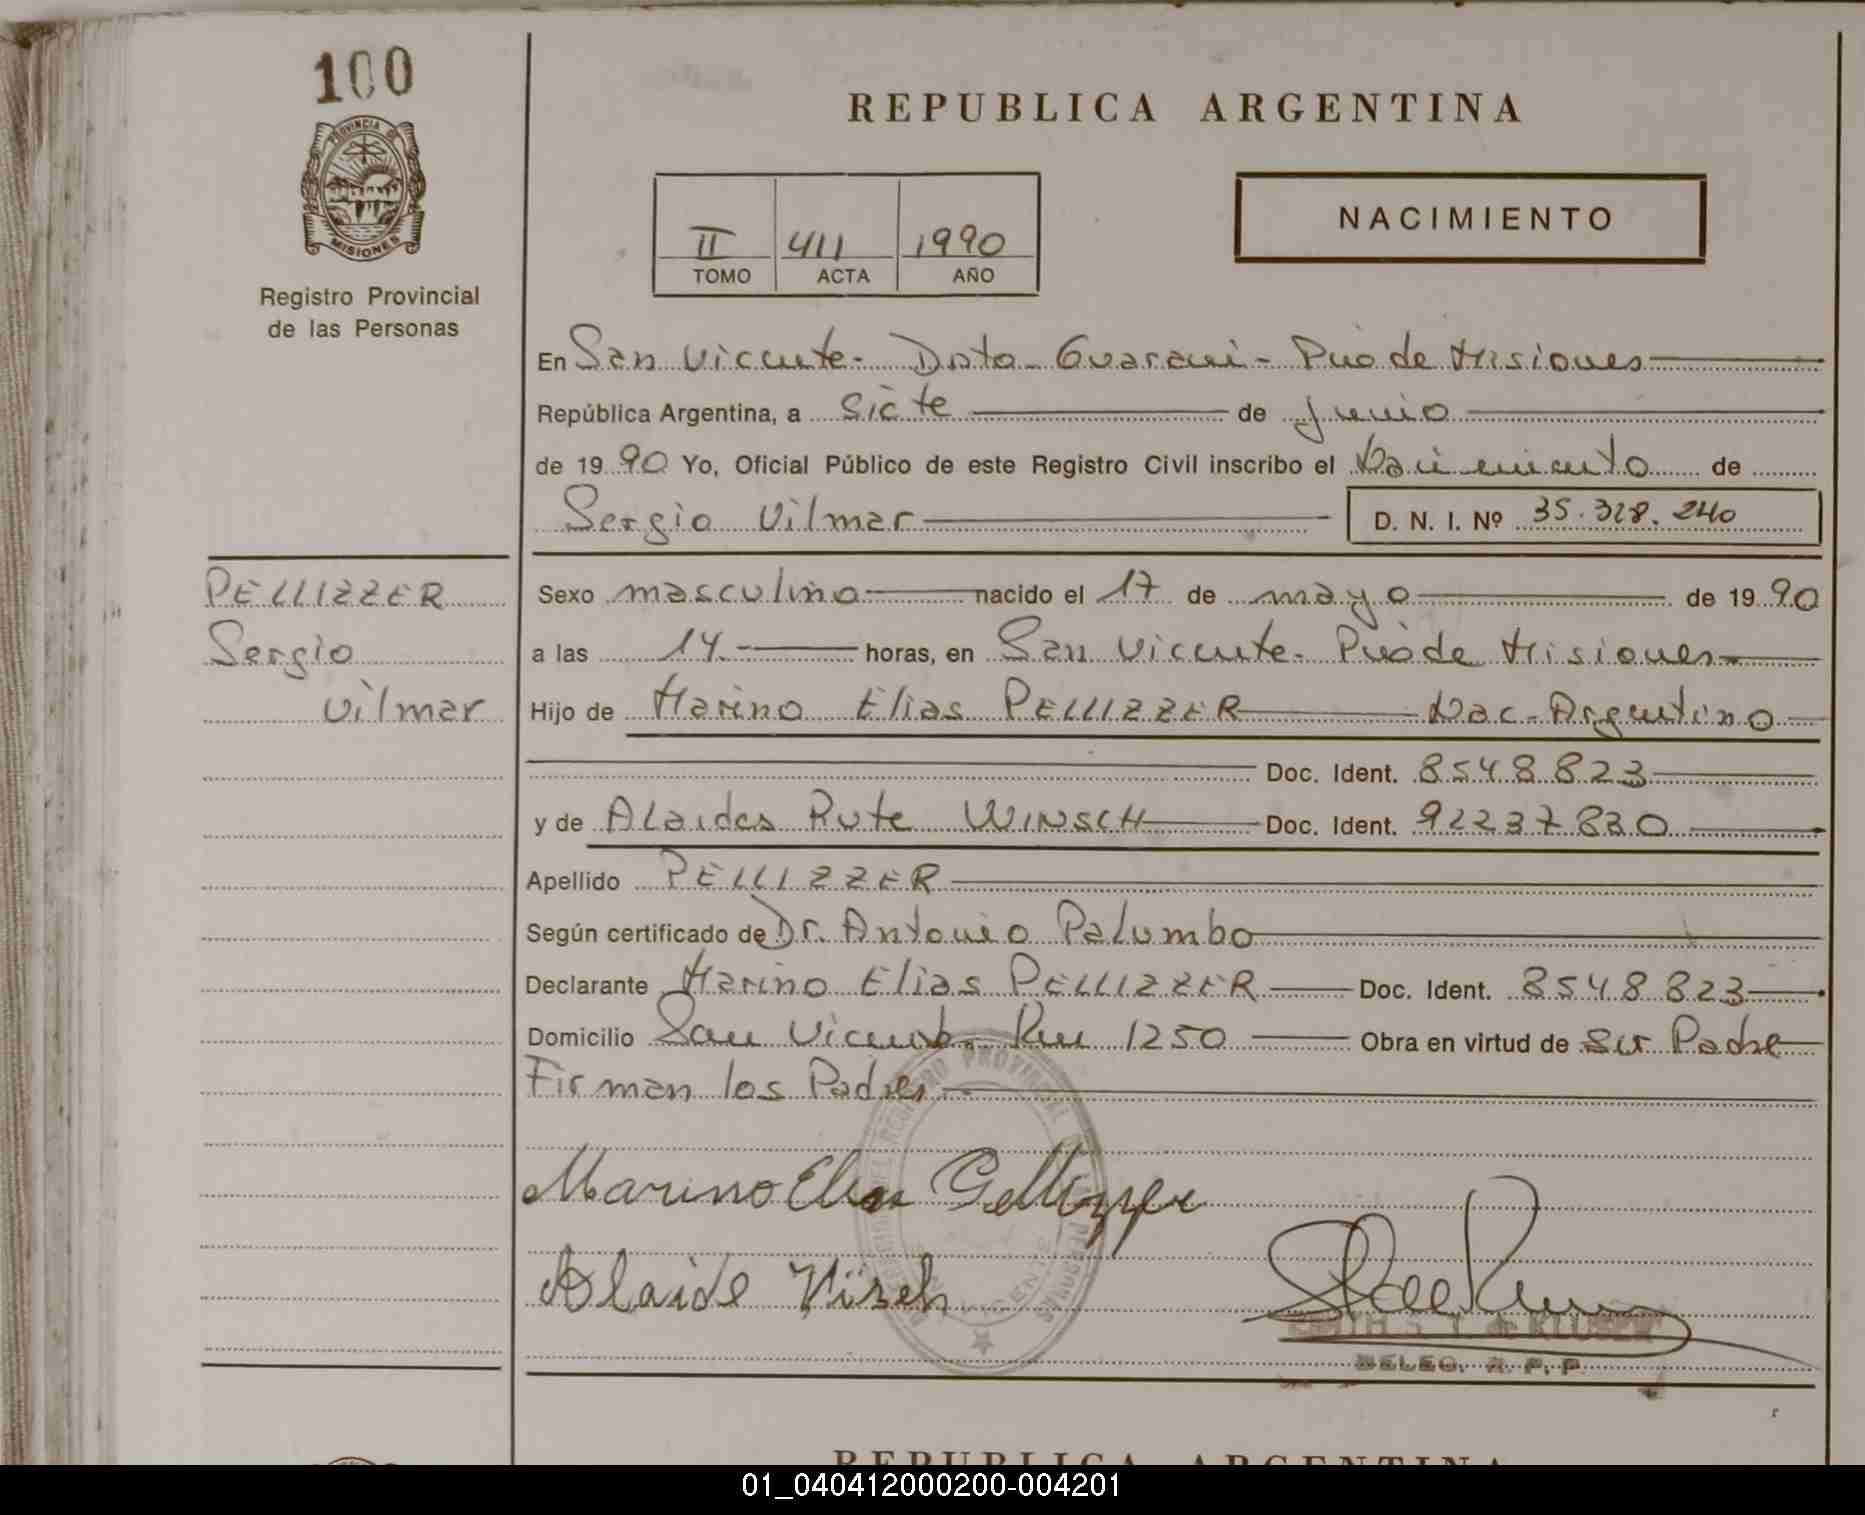 100
PROVINCIA DE
MISIONES
Registro Provincial
de las Personas
REPUBLICA ARGENTINA
II 411 1990
TOMO ACTA AÑO
NACIMIENTO
En San Vicente - Dpto - Guarani - Pcia de Misiones
República Argentina, a siete de junio
de 1990 Yo, Oficial Público de este Registro Civil inscribo el Nacimiento de
Sergio Vilmar D. N. I. Nº 35.328.240
PELLIZZER
Sergio
Vilmar
Sexo masculino nacido el 17 de mayo de 1990
a las 14 horas, en San Vicente - Pcia de Misiones
Hijo de Marino Elias PELLIZZER Nac - Argentino
Doc. Ident. 8548823
y de Alaides Rute WINSCH Doc. Ident. 92237830
Apellido PELLIZZER
Según certificado de Dr. Antonio Palumbo
Declarante Marino Elias PELLIZZER Doc. Ident. 8548823
Domicilio San Vicente Km 1250 Obra en virtud de su Padre
Firman los Padres
Marino Elias Pellizzer
Alaide
DELEG. R. P. P.
REPUBLICA ARGENTINA
01_040412000200-004201